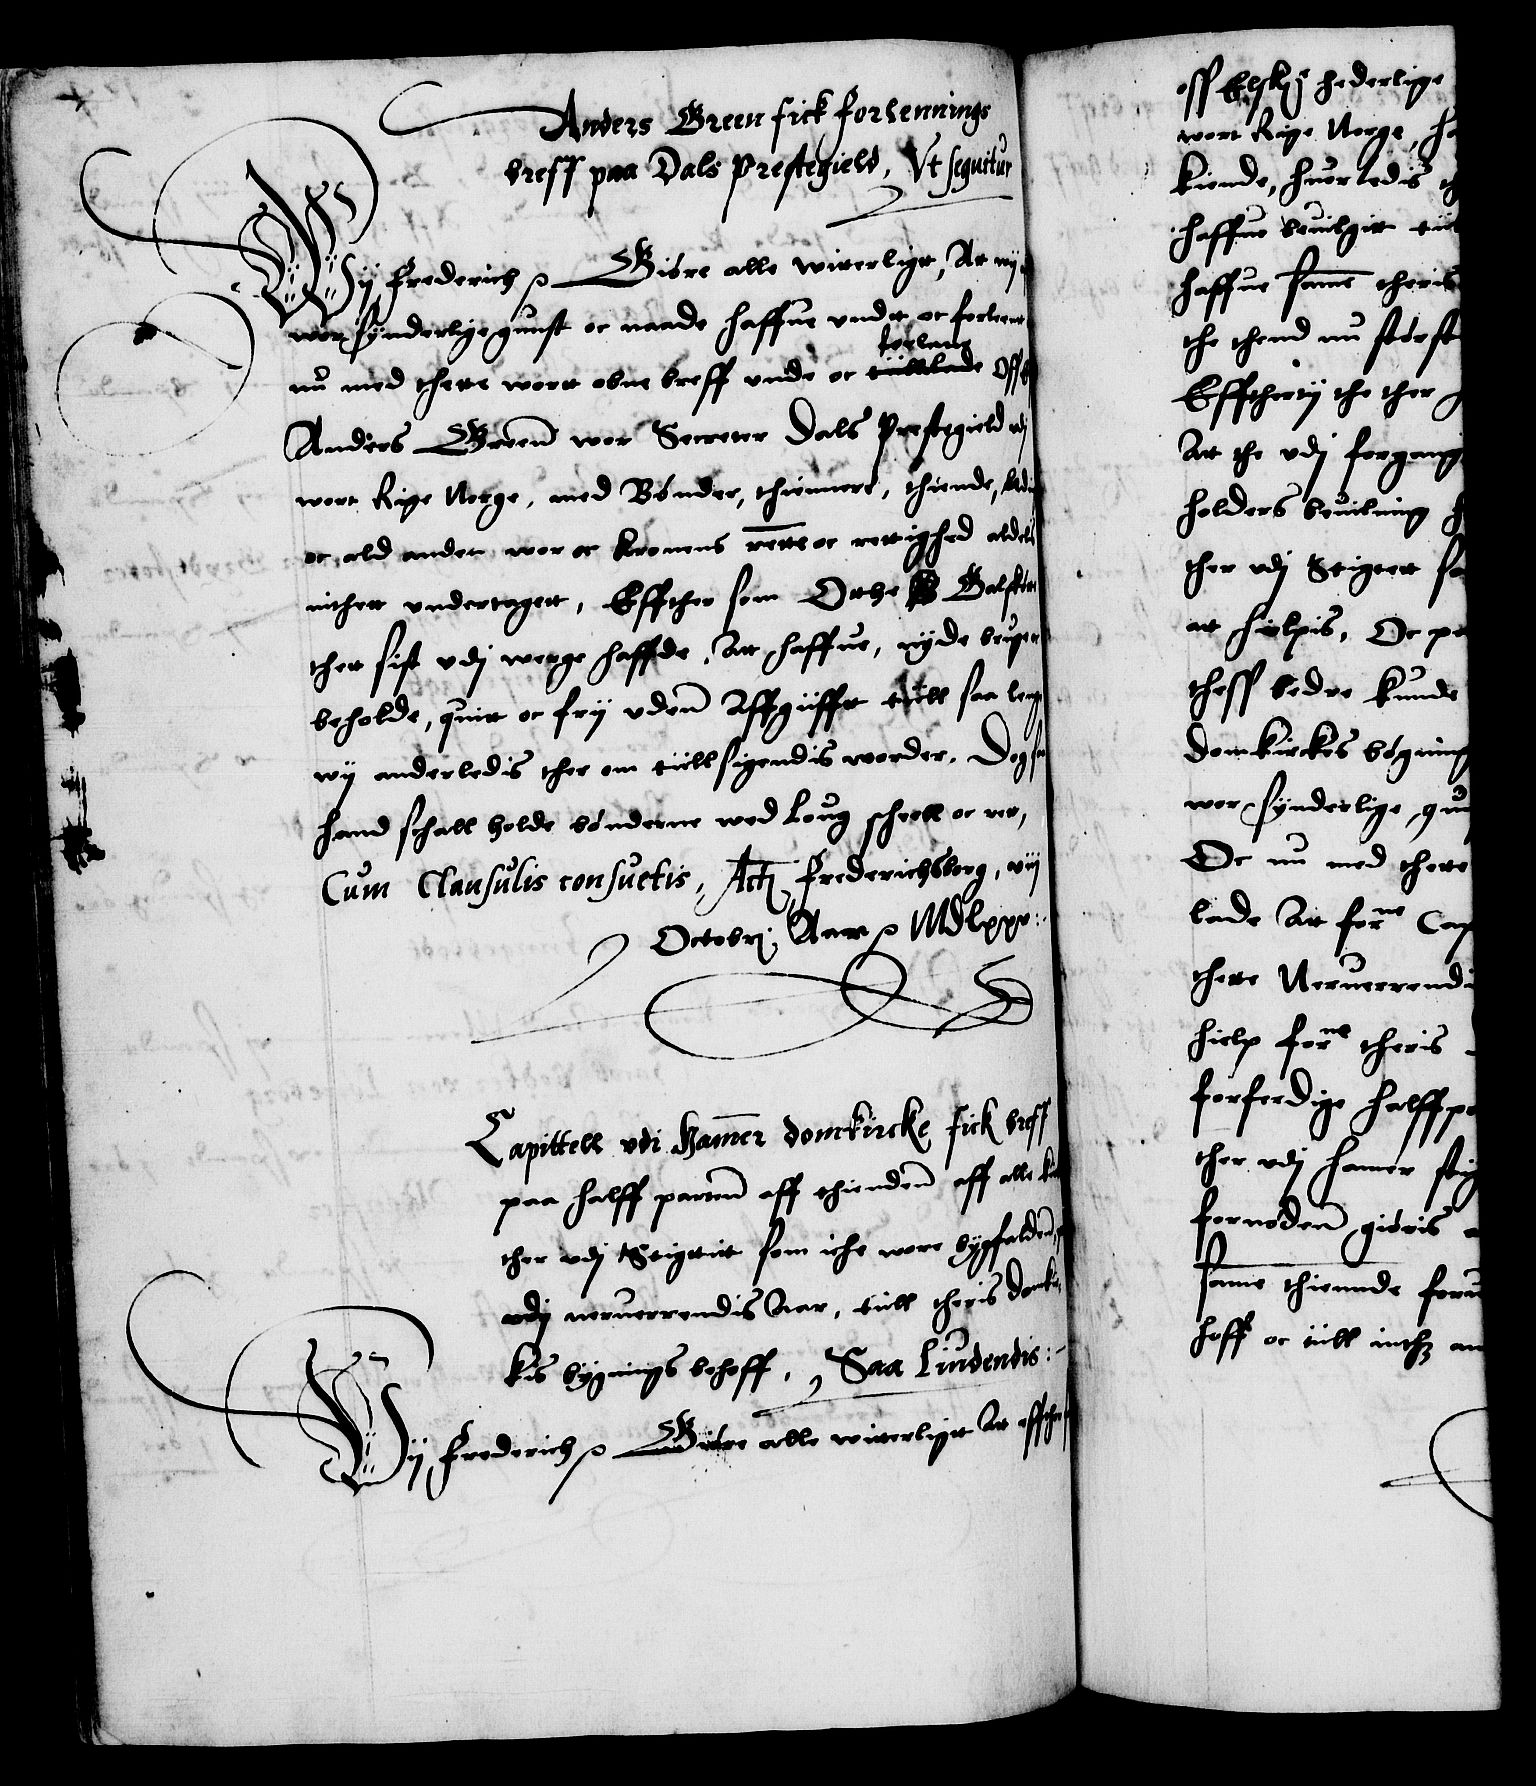 Anders Green fick forlennings
breff paa Dals Prestegield, Vt sequitur
Wij Frederich etc Giøre alle witterligt, At wij
wor synderlige gunst oc naade haffue vndt oc forlent
nu med thette wort obne breff vnde oc forlene Oss
Anders Green wor Secreter Dals Prestegield vdj
wort Rige Norge, med Bønder, thiennere, thiende,
oc ald anden wor oc kronens rente oc rettighed aldelis
inthet vndertaget, Effther som Otthe Galskøt
thet sist vdj werge haffde, At haffue, nyde bruge
beholde, quit oc frij vden Affgiifft tiill saa lenge
wij anderledis ther om tiillsigendis worder. Dog
hand schall holde bønderne wed Loug schell oc ret,
Cum Clausulis consuetis, Actum Frederichsborg, viij
Octobrj Aar etc Mdlxxx:
Capittell vdi Hammer domkircke fick breff
paa halff parten aff thienden aff alle
ther vdj Stigtit som iche wore bygfalden
vdj neruerrendis Aar, tiill theris domkir
kis bygnings behoff, Saa liudendis:
Wij Frederich etc Giøre alle witterligt At effther
oss Elskelige hederlige
wort Rige Norge, ha
kiende, huorledis
haffue beuilgit tiil
haffue samme theris
the thend nu størst
Efftherdj the ther
At the vdj forgang
holders beuilning
ther vdj Stigtet
at hielpis, Oc
thess bedre kunde
Domkirckes bygning
wor synderlige gun
Oc nu med thette
lade At forne Cap
thette Neruerrendi
hielp forne theris
forferdige halffpa
ther vdj Hamer stig
fornøden giøris
samme thiennde
hoff oc tiill inthet an